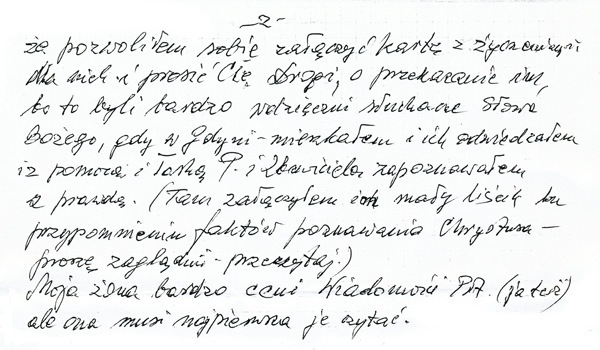 - 2 -
że pozwoliłem sobie załączyć kartę z życzeniami
dla nich i prosić Cię Drogi, o przekazanie im,
bo to byli bardzo wdzięczni słuchacze Słowa
Bożego, gdy w Gdyni - mieszkałem i ich odwiedzałem
i z pomocą i łaską P. i Zbawiciela zapoznawałem
z prawdą. (Tam załączyłem im mały liścik ku
przypomnieniu faktów poznawania Chrystusa -
proszę zaglądnij - przeczytaj.)
Moja żona bardzo ceni Wiadomości (ja też)
ale ona musi najpierwsza je czytać.